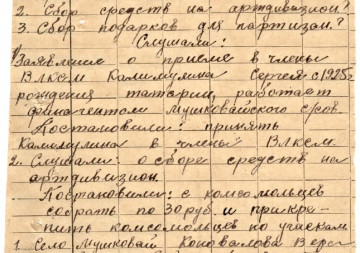 2. Сбор средств на артдивизион?
3. Сбор подарков для партизан?
Слушали:
1/Заявление о приеме в члены
ВЛКСМ Калимулина Сергея с 1925г.
рождения татарин, работает
финагентом Мушковайского с/сов.
Постановили: принять
Калимулина в члены ВЛКСМ.
2. Слушали: о сборе средств на
артдивизион.
Постановили: с комсомольцев
собрать по 30 руб. и прикре-
пить комсомольцев по участкам.
1. Село Мушковай Коновалова Вера